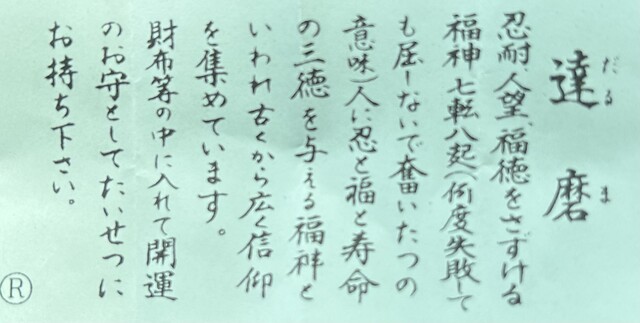 達磨
だるま
忍耐、人望、福徳をさずける
福神 七転八起(何度失敗して
も屈しないで奮いたつの
意味)人に忍と福と寿命
の三徳を与える福神と
いわれ古くから広く信仰
を集めています。
財布等の中に入れて開運
のお守としてたいせつに
お持ち下さい。
R